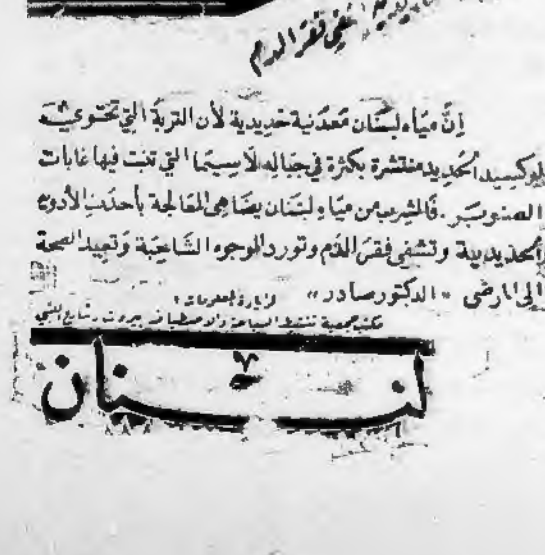 تشفي فقر الدم
إنَّ مياه لبنان مَعدَنية حَديدية لأن التربَة التي تحتوي على
اوكسيد الحَديد منتشرة بكثرة في جباله لاسيّما التي تنبت فيها غابات
الصنوبَر. فالشرب من مياه لبنان يضاهي المعَالجة بأحدَث الأدوية
الحَديدية وتشفي فقرَ الدَم وتورد الوجوه الشاحبَة وَتعيد الصحة
الى المرضى «الدكتور صادر» لزيادة المعلومات:
مكتب جمعية تنشيط السياحة والاصطياف بيروت شارع اللنبي
لبنان